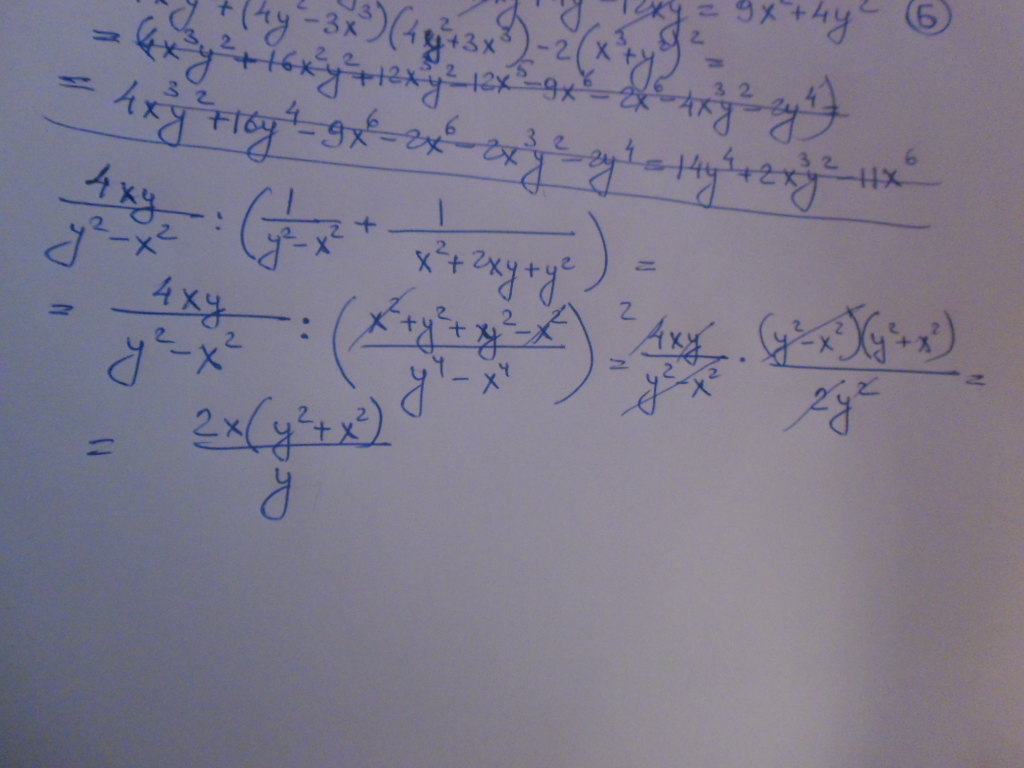 + (4y² - 3x³)(4y² + 3x³) - 2(x³ + y²)² = 12xy = 9x² + 4y² Б
= (4x³y² + 16x²y² + 12x³y² - 12x⁵ - 9x⁶ - 2x⁶ - 4x³y² - 2y⁴) =
= 4x³y² + 16y⁴ - 9x⁶ - 2x⁶ - 2x³y² - 2y⁴ = 14y⁴ + 2x³y² - 11x⁶
4xy / (y² - x²) : (1 / (y² - x²) + 1 / (x² + 2xy + y²)) =
= 4xy / (y² - x²) : ((x² + y² + xy² - x²) / (y⁴ - x⁴)) = 2 4xy / (y² - x²) · (y² - x²)(y² + x²) / 2y² =
= 2x(y² + x²) / y